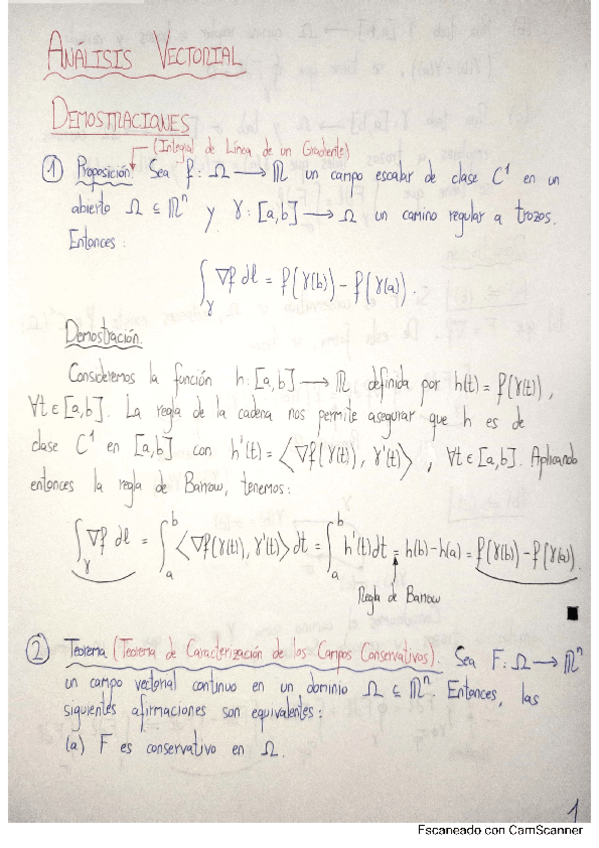 ANÁLISIS VECTORIAL
DEMOSTRACIONES
(Integral de Línea de un Gradiente)
① Proposición. Sea f: Ω ⟶ ℝ un campo escalar de clase C¹ en un
abierto Ω ⊆ ℝⁿ y γ: [a,b] ⟶ Ω un camino regular a trozos.
Entonces:
∫_γ ∇f dl = f(γ(b)) - f(γ(a)).
Demostración.
Consideremos la función h: [a,b] ⟶ ℝ definida por h(t) = f(γ(t)),
∀t ∈ [a,b]. La regla de la cadena nos permite asegurar que h es de
clase C¹ en [a,b] con h'(t) = ⟨∇f(γ(t)), γ'(t)⟩, ∀t ∈ [a,b]. Aplicando
entonces la regla de Barrow, tenemos:
∫_γ ∇f dl = ∫_a^b ⟨∇f(γ(t)), γ'(t)⟩ dt = ∫_a^b h'(t) dt = h(b) - h(a) = f(γ(b)) - f(γ(a)).
Regla de Barrow
② Teorema (Teorema de Caracterización de los Campos Conservativos). Sea F: Ω ⟶ ℝⁿ
un campo vectorial continuo en un dominio Ω ⊆ ℝⁿ. Entonces, las
siguientes afirmaciones son equivalentes:
(a) F es conservativo en Ω.
1
Escaneado con CamScanner